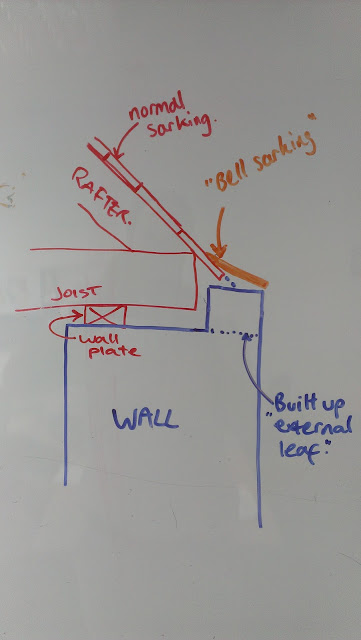 normal
sarking.
"Bell sarking"
RAFTER.
JOIST
Wall
plate
WALL
"Built up
external
leaf."